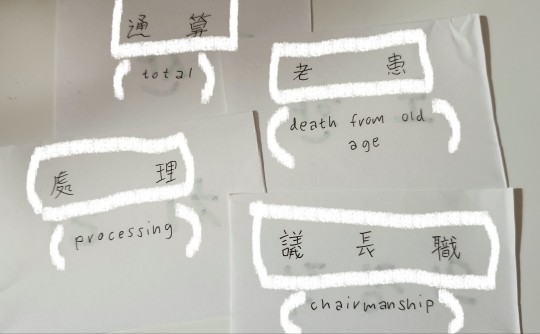 通算
total
老患
death from old
age
處理
processing
議長職
chairmanship